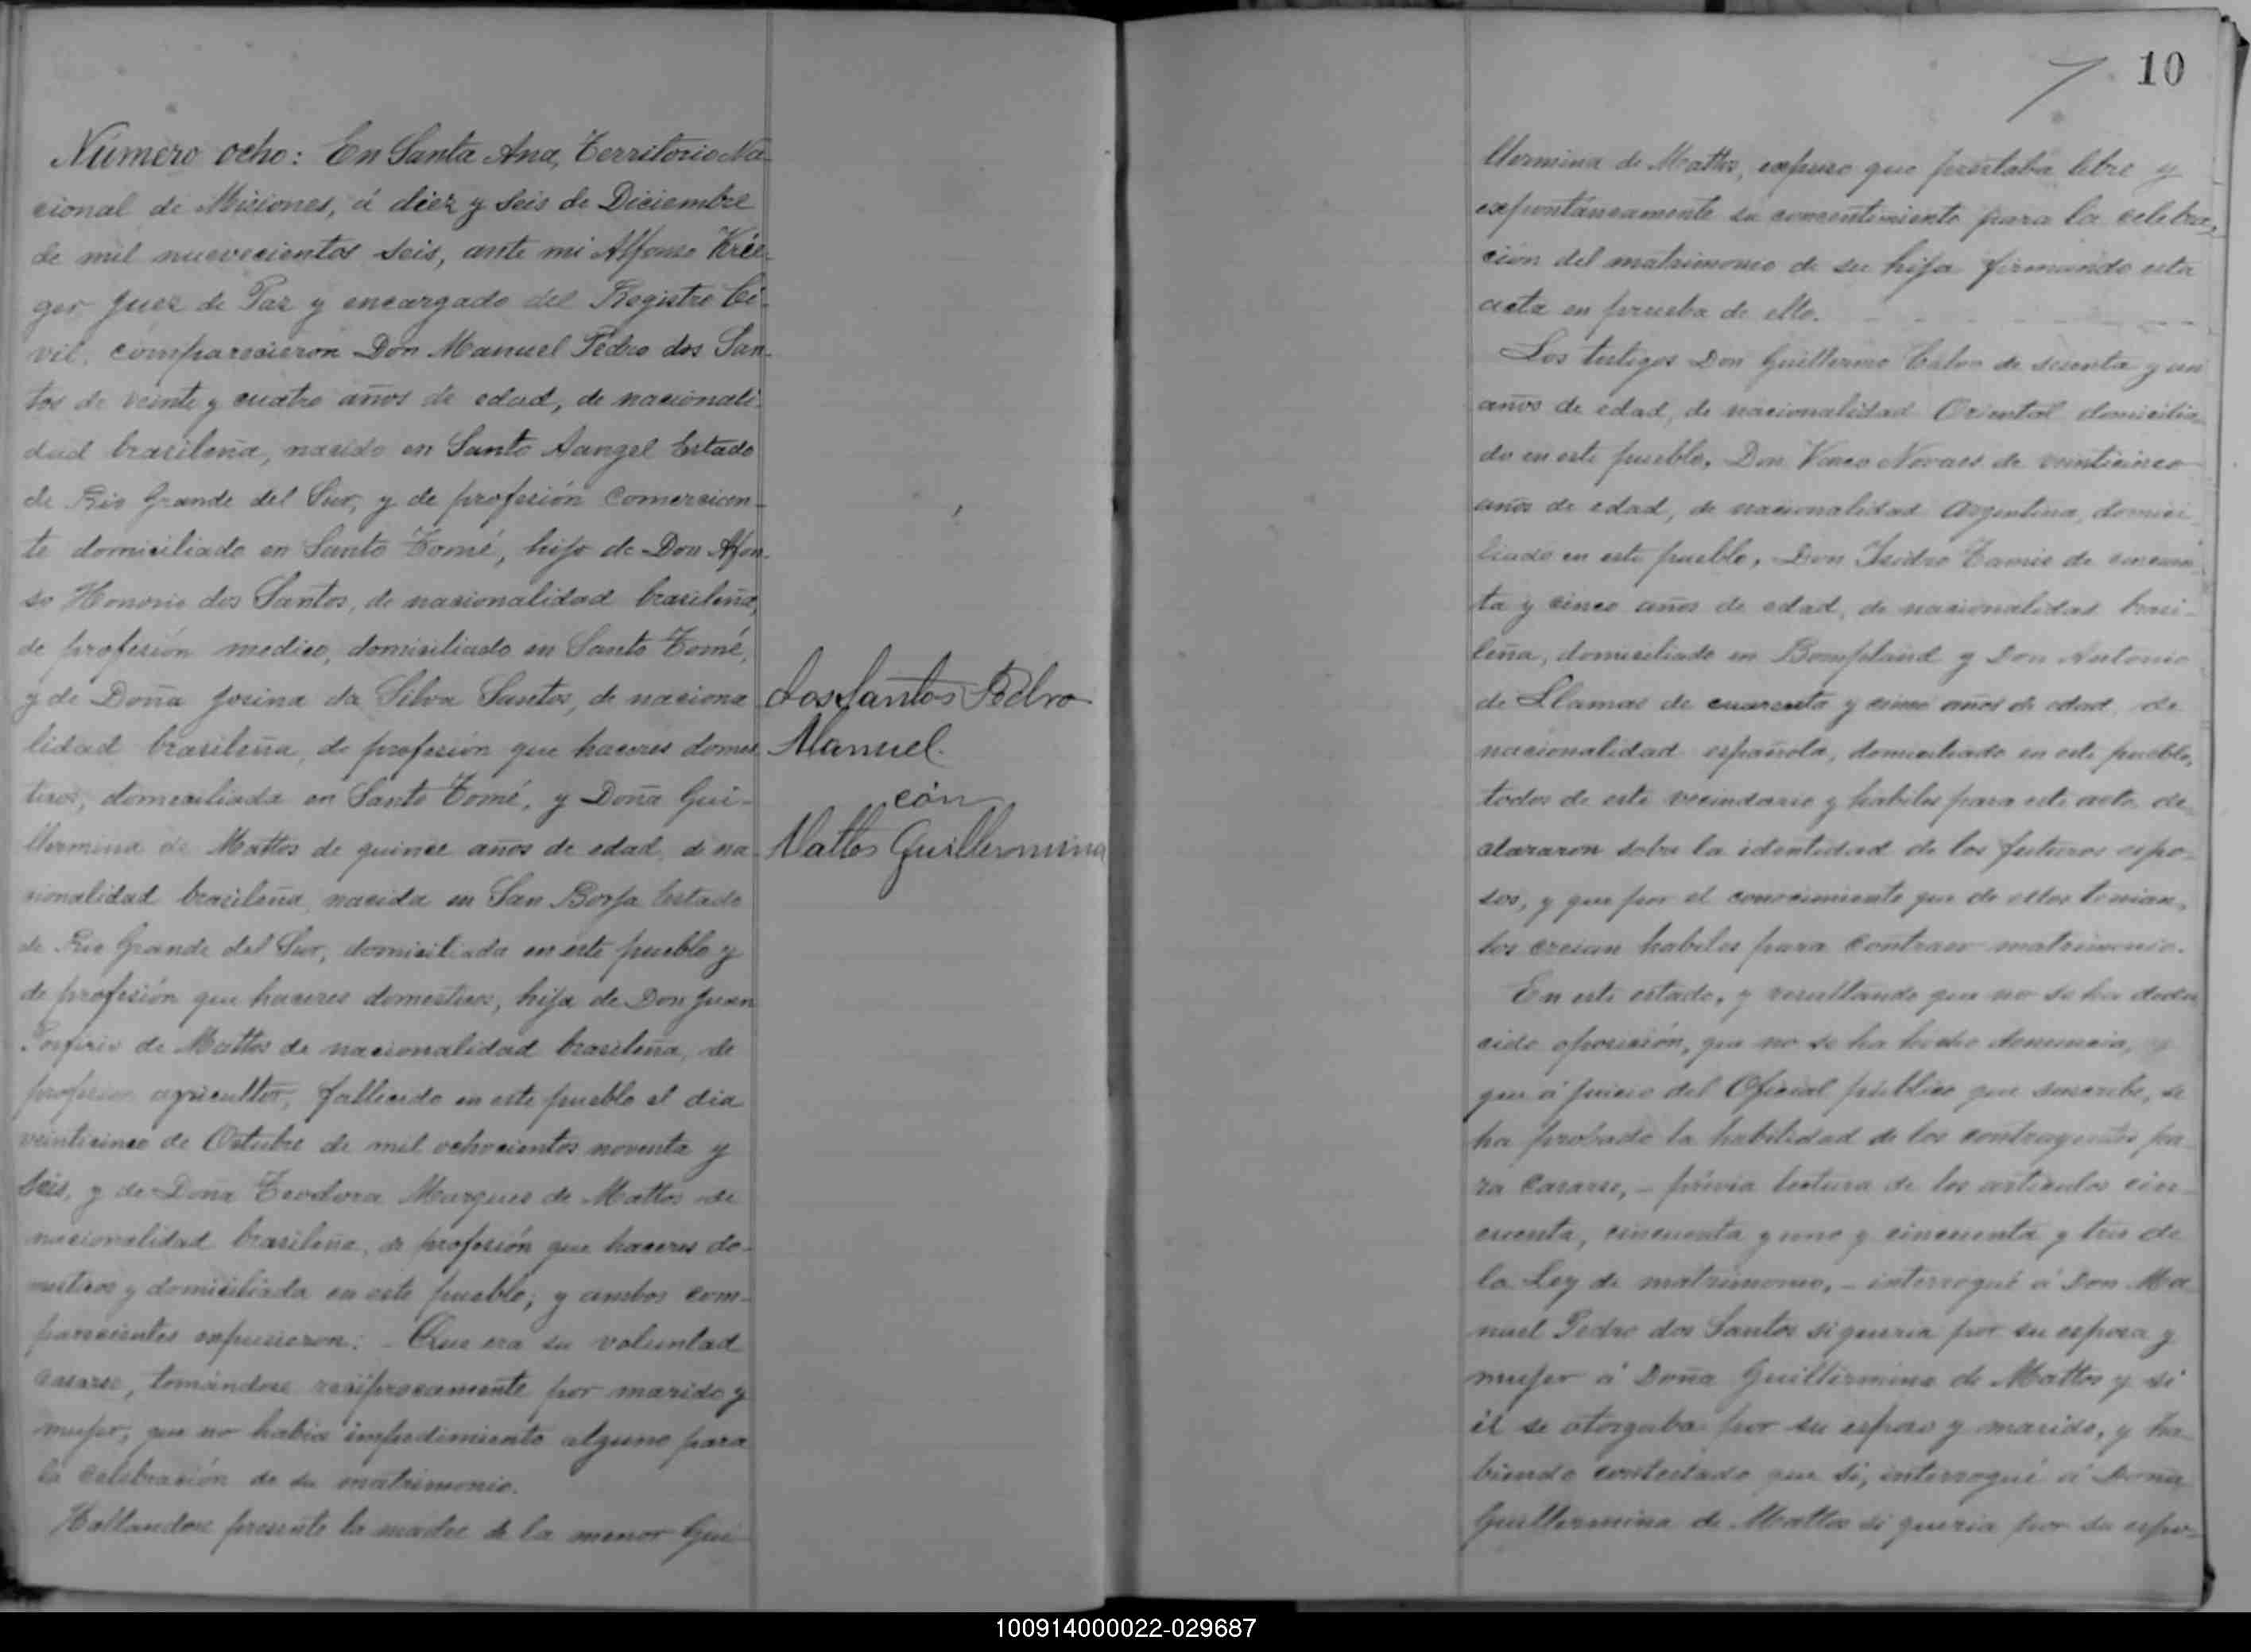 Número ocho: En Santa Ana, Territorio Na-
cional de Misiones, á diez y seis de Diciembre
de mil nuevecientos seis, ante mi Alfonso Krie-
ger Juez de Paz y encargado del Registro Ci-
vil, comparecieron Don Manuel Pedro dos San-
tos de veinte y cuatro años de edad, de nacionali-
dad brasileña, nacido en Santo Aangel Estado
de Rio Grande del Sur, y de profesión Comercian-
te domiciliado en Santo Tomé, hijo de Don Afon-
so Honorio dos Santos, de nacionalidad brasileña,
de profesión medico, domiciliado en Santo Tomé,
y de Doña Josina da Silva Santos, de naciona
lidad brasileña, de profesión que haceres domes
ticos, domiciliada en Santo Tomé, y Doña Gui-
llermina de Mattos de quince años de edad, de na-
cionalidad brasileña, nacida en San Borja Estado
de Rio Grande del Sur, domiciliada en este pueblo y
de profesión que haceres domesticos, hija de Don Juan
Porfirio de Mattos de nacionalidad brasileña, de
profesion agricultor, fallecido en este pueblo el dia
veinticinco de Octubre de mil ochocientos noventa y
seis, y de Doña Teodora Marques de Mattos de
nacionalidad brasileña, de profesión que haceres do-
mesticos y domiciliada en este pueblo; y ambos com-
parecientes expusieron: - Que era su voluntad
casarse, tomándose reciprocamente por marido y
mujer, que no habia impedimiento alguno para
la celebración de su matrimonio.
Hallandose presente la madre de la menor Gui
Dos Santos Pedro
Manuel.
cón
Mattos Guillermina
10
llermina de Mattos, expuso que prestaba libre y
expontáneamente su consentimiento para la celebra-
ción del matrimonio de su hija firmando esta
acta en prueba de ello.
Los testigos Don Guillermo Calvo de sesenta y un
años de edad, de nacionalidad Oriental domicilia-
do en este pueblo, Don Novaes de veinticinco
años de edad, de nacionalidad Argentina, domici-
liado en este pueblo, Don Isidro de cincuen-
ta y cinco años de edad, de nacionalidad brasi-
leña, domiciliado en Bompland y Don Antonio
de Llamas de cuarenta y cinco años de edad de
nacionalidad española, domiciliado en este pueblo,
todos de este vecindario y habiles para este acto de-
clararon sobre la identidad de los futuros espo-
sos, y que por el conocimiento que de ellos tenian,
los creian habiles para contraer matrimonio.
En este estado, y resultando que no se ha dedu
cido oposición, que no se ha hecho denuncia, y
que á juicio del Oficial público que suscribe, se
ha probado la habilidad de los contrayentes pa-
ra casarse, - prévia lectura de los articulos cin-
cuenta, cincuenta y uno y cincuenta y tres de
la Ley de matrimonio, - interrogué á Don Ma
nuel Pedro dos Santos si queria por su esposa y
mujer á Doña Guillermina de Mattos y si
él se otorgaba por su esposo y marido, y ha-
biendo contestado que si, interrogué á Doña
Guillermina de Mattos si queria por su espo-
100914000022-029687